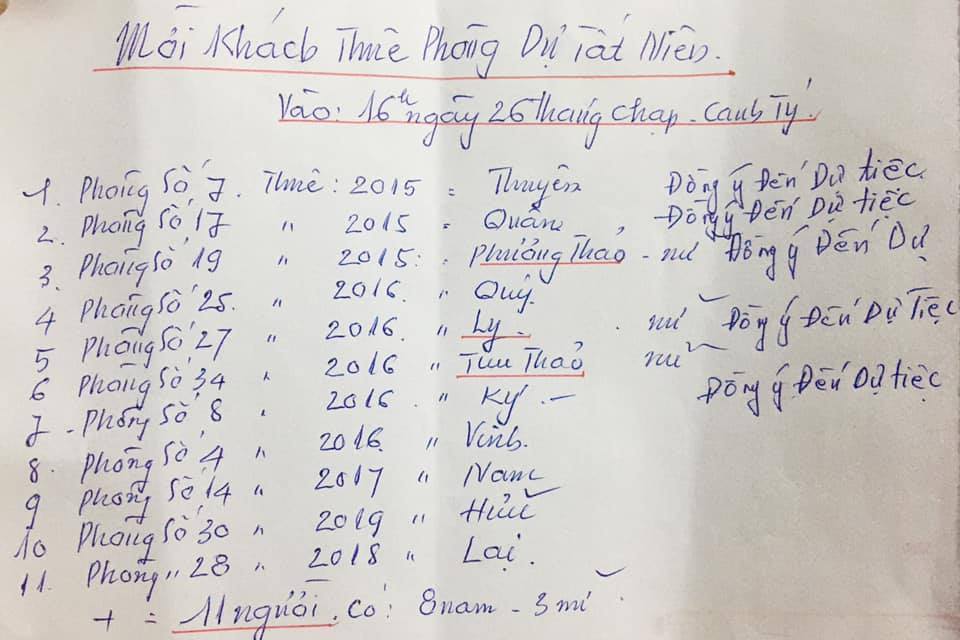 Mời Khách Thuê Phòng Dự Tất Niên.
Vào: 16h ngày 26 Tháng chạp - Canh Tý.
1. Phòng Số 7. Thuê: 2015 = Thuyên Đồng ý Đến Dự tiệc.
2. Phòng Số 17 " 2015 = Quân Đồng ý Đến Dự tiệc
3. Phòng Số 19 " 2015: Phương Thảo - nữ Đồng ý Đến Dự
4 Phòng Số 25. " 2016. " Quý.
5 Phòng Số 27 " 2016 " Ly. nữ Đồng ý Đến Dự Tiệc
6 Phòng Số 34 " 2016 " Thu Thảo nữ
7 - Phòng Số 8 " 2016. " Ký. - Đồng ý Đến Dự tiệc
8. Phòng Số 4 " 2016. " Vinh.
9 Phòng Số 14 " 2017 " Nam
10 Phòng Số 30 " 2019 " Hữu
11. Phòng " 28 " 2018 " Lại.
+ = 11 người. Có: 8 nam - 3 nữ.